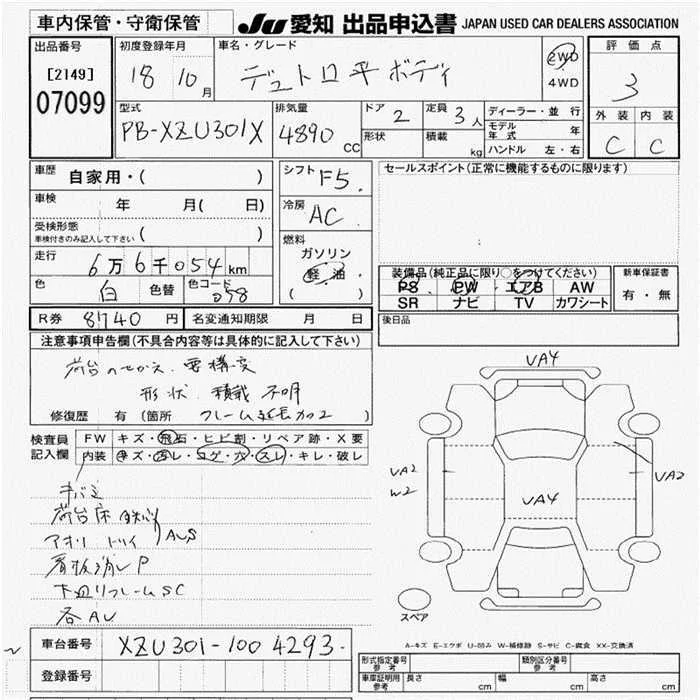 車内保管・守衛保管
JU 愛知 出品申込書 JAPAN USED CAR DEALERS ASSOCIATION
出品番号
[2149]
07099
初度登録年月
18 10月
車名・グレード
デュトロ平ボディ
2WD
4WD
評価点
3
外装 内装
C C
型式
PB-XZU301X
排気量
4890 CC
ドア 2
形状
定員 3人
積載 kg
ディーラー・並行
モデル年式 年
ハンドル 左・右
車歴
自家用・( )
車検 年 月( 日)
受検形態
車検付きのみ記入して下さい ( )
走行
6万6千054km
色 白 色替 色コード 058
シフト F5
冷房 AC
燃料
ガソリン
軽油
( )
セールスポイント(正常に機能するものに限ります)
装備品(純正品に限り○をつけてください)
PS PW エアB AW
SR ナビ TV カワシート
新車保証書
有・無
R券 8740円 名変通知期限 月 日
後日品
注意事項申告欄(不具合内容等は具体的に記入して下さい)
荷台のせかえ 要構変
形状、積載 不明
修復歴 有(箇所 フレーム延長加工 )
検査員記入欄
FW キズ・飛石・ヒビ割・リペア跡・X要
内装 キズ・汚レ・コゲ・穴・スレ・キレ・破レ
キバミ
荷台床
アオリ
看板消し P
下廻リフレームSC
各AU
VA4
VA2
W2
VA4
VA2
スペア
A-キズ E-エクボ U-凹み W-補修跡 S-サビ C-腐食 XX-交換済
車台番号 XZU301-1004293
登録番号
形式指定番号 参考 類別区分番号 参考
車庫証明用 参考 長さ cm 幅 cm 高さ cm